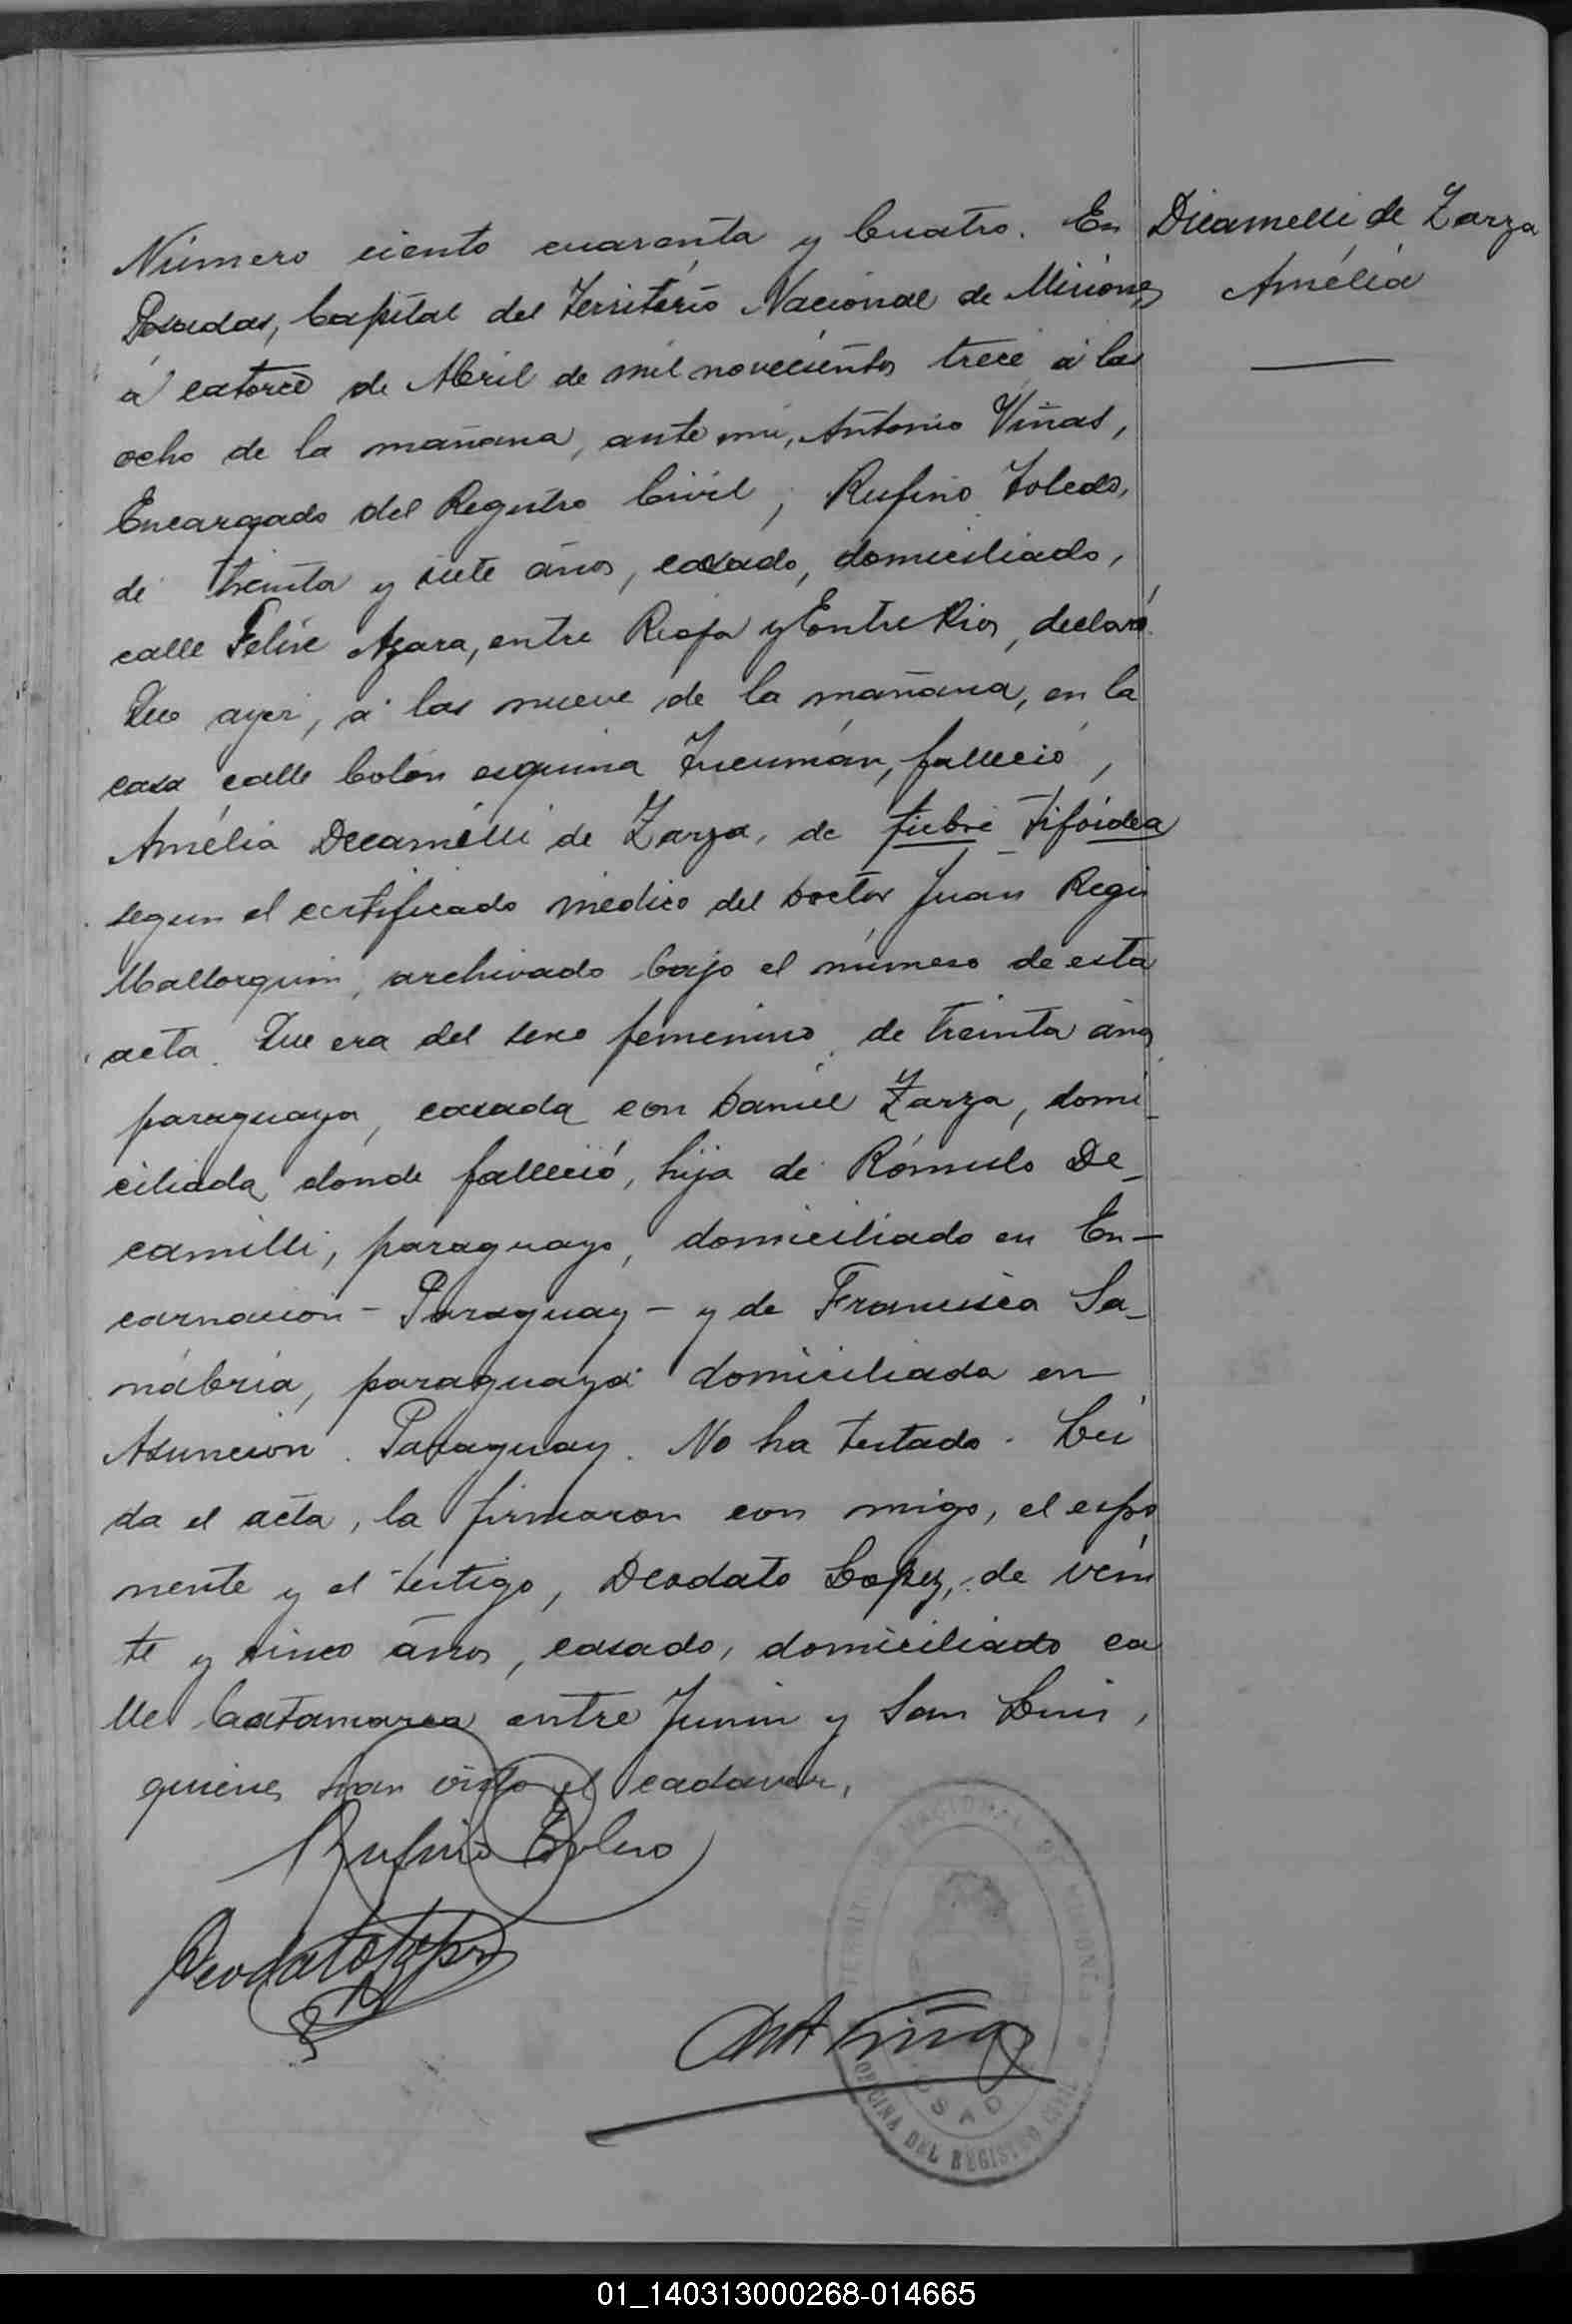 Número ciento cuarenta y Cuatro. En
Posadas, Capital del Territorio Nacional de Misiones
á catorce de Abril de mil novecientos trece á las
ocho de la mañana, ante mi, Antonio Viñas,
Encargado del Registro Civil, Rufino Toledo,
de treinta y siete años, casado, domiciliado,
calle Felix Azara, entre Rioja y Entre Rios, declaró.
Que ayer, á las nueve de la mañana, en la
casa calle Colón esquina Tucumán, falleció,
Amélia Decamilli de Zarza, de fiebre tifoidea
segun el certificado médico del Doctor Juan Regis
Mallorquin, archivado bajo el número de esta
acta. Que era del sexo femenino, de treinta años
paraguaya, casada con Daniel Zarza, domi-
ciliada donde falleció, hija de Rómulo De-
camilli, paraguayo, domiciliado en En-
carnacion - Paraguay - y de Francisca Sa-
nábria, paraguaya domiciliada en
Asuncion. Paraguay. No ha testado. Lei
da el acta, la firmaron con migo, el espo
nente y el testigo, Deodato Lopez, de vein
te y cinco años, casado, domiciliado ca
lle Catamarca entre Junin y San Luis,
quienes han visto el cadaver.
Rufino Toledo
Deodato Lopez
Ant Viñas
Dicamelli de Zarza
Amélia
TERRITORIO NACIONAL DE MISIONES
POSADAS
OFICINA DEL REGISTRO CIVIL
01_140313000268-014665